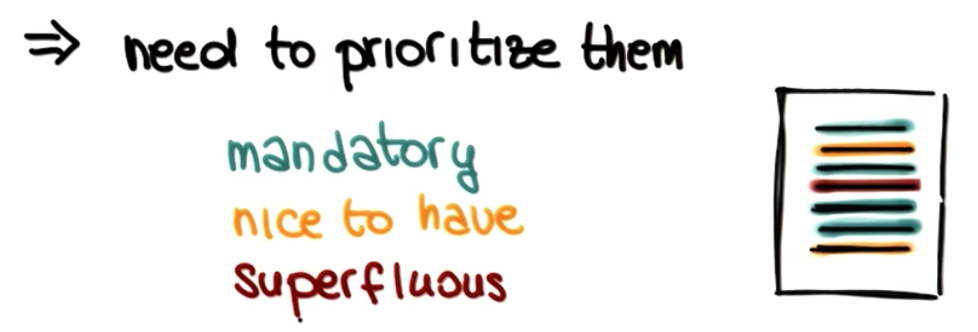 ⇒ need to prioritize them
mandatory
nice to have
superfluous